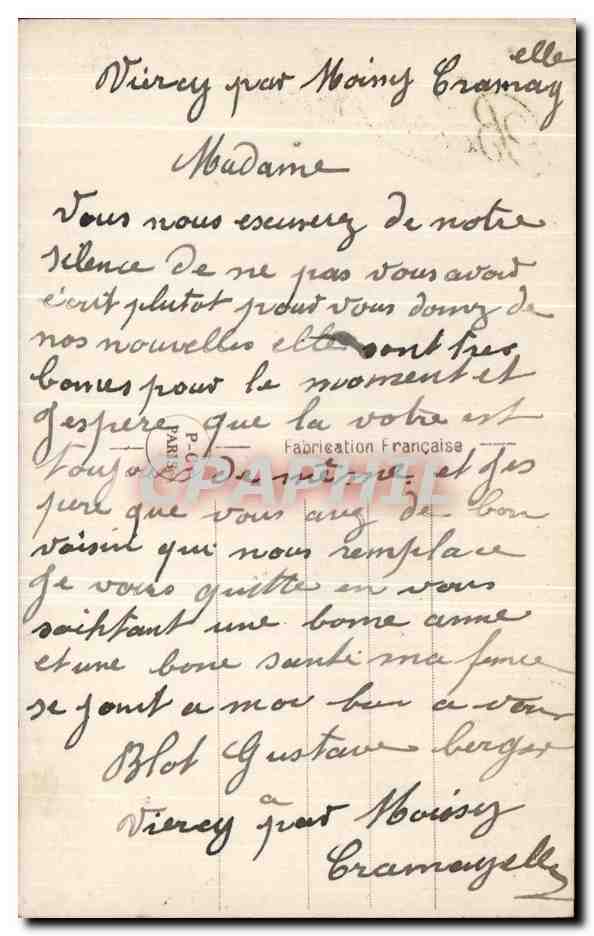 elle
Viercy par Moissy Cramay
Madame
Vous nous excuserez de notre
silence de ne pas vous avoir
écrit plutot pour vous donnez de
nos nouvelles elle sont tres
bonnes pour le moment et
J'espere que la votre est
P-C PARIS
Fabrication Française
toujours de même et J'es
CPAPHIL
pere que vous avez de bon
voisin qui nous remplace
Je vous quitte en vous
une bonne anne
et une bone santé ma fence
se joint a moi a vous
Blot Gustave berger
a
Viercy par Moissy
Cramayelle